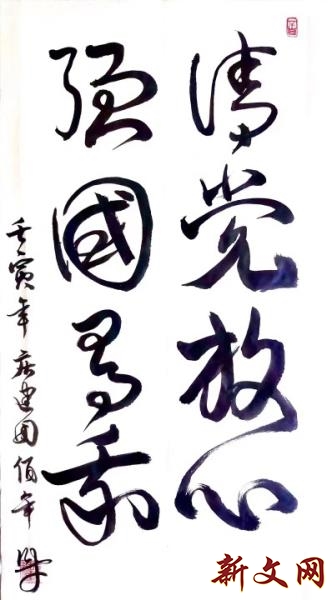 请党放心
强國有我
壬寅年庆建团佰年
新文网